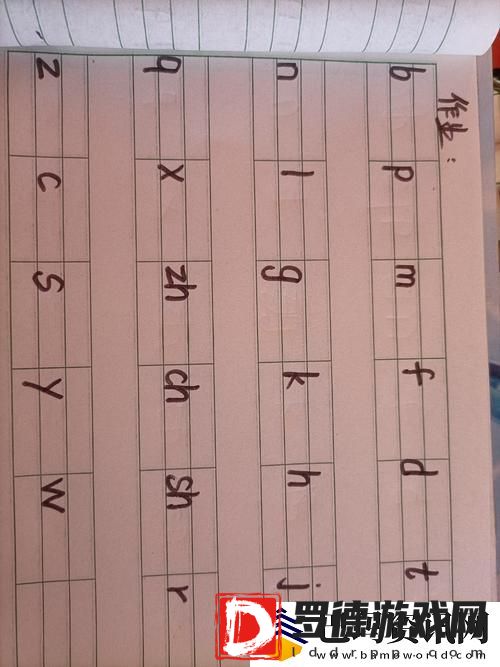 作业：
b p m f d t
n l g k h j
q x zh ch sh r
z c s y w
罗德游戏网
www.bamboword.com